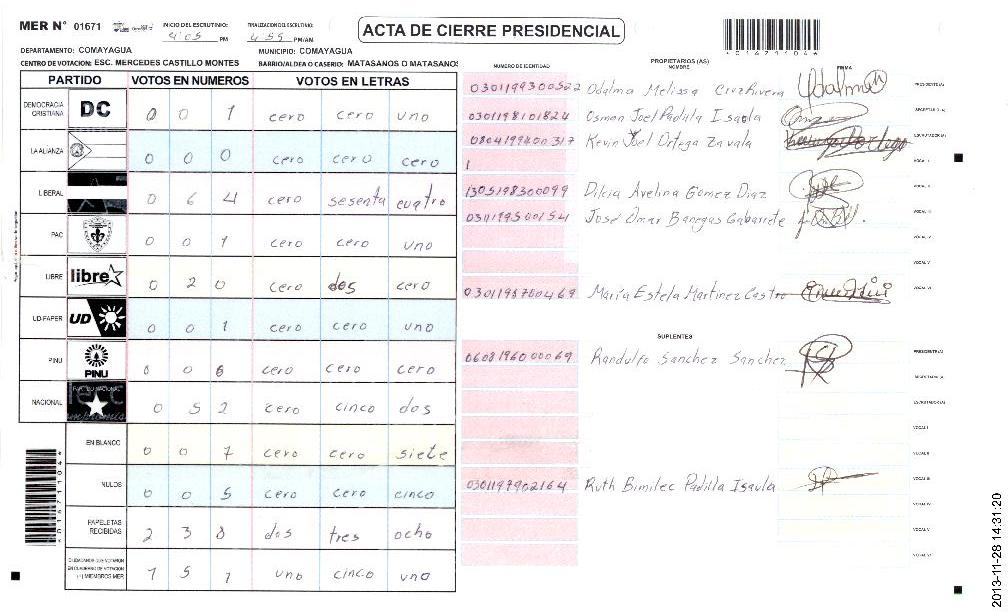 MER N° 01671
INICIO DEL ESCRUTINIO: 4:05 PM
FINALIZACION DEL ESCRUTINIO: 4:55 PM/AM
ACTA DE CIERRE PRESIDENCIAL
0167110461
DEPARTAMENTO: COMAYAGUA
MUNICIPIO: COMAYAGUA
CENTRO DE VOTACION: ESC. MERCEDES CASTILLO MONTES
BARRIO/ALDEA O CASERIO: MATASANOS O MATASANOS
PARTIDO VOTOS EN NUMEROS VOTOS EN LETRAS
DEMOCRACIA CRISTIANA DC 0 0 1 cero cero uno
LA ALIANZA 0 0 0 cero cero cero
LIBERAL 0 6 4 cero sesenta cuatro
PAC 0 0 1 cero cero uno
LIBRE libre 0 2 0 cero dos cero
UD-FAPER UD 0 0 1 cero cero uno
PINU PINU 0 0 0 cero cero cero
NACIONAL PARTIDO NACIONAL 0 5 2 cero cinco dos
EN BLANCO 0 0 7 cero cero siete
NULOS 0 0 5 cero cero cinco
PAPELETAS RECIBIDAS 2 3 8 dos tres ocho
CIUDADANOS QUE VOTARON EN CUADERNO DE VOTACION (+) MIEMBROS MER 1 5 1 uno cinco uno
NUMERO DE IDENTIDAD
PROPIETARIOS (AS)
NOMBRE
FIRMA
0301199300522 Odalma Melissa Cruz Rivera Odalma PRESIDENTE(A)
0301198101824 Osman Joel Padilla Isaula SECRETARIO(A)
0804199400317 Kevin Joel Ortega Zavala ESCRUTADOR(A)
1 VOCAL I
1305198300099 Dilcia Avelina Gomez Diaz VOCAL II
0301199500154 José Omar Banegas Gabarrete VOCAL III
VOCAL IV
VOCAL V
0301198700469 María Estela Martinez Castro VOCAL VI
SUPLENTES
0608196000069 Randulfo Sanchez Sanchez PRESIDENTE(A)
SECRETARIO(A)
ESCRUTADOR(A)
VOCAL I
VOCAL II
0301199902164 Ruth Bimilec Padilla Isaula VOCAL III
VOCAL IV
VOCAL V
VOCAL VI
2013-11-28 14:31:20